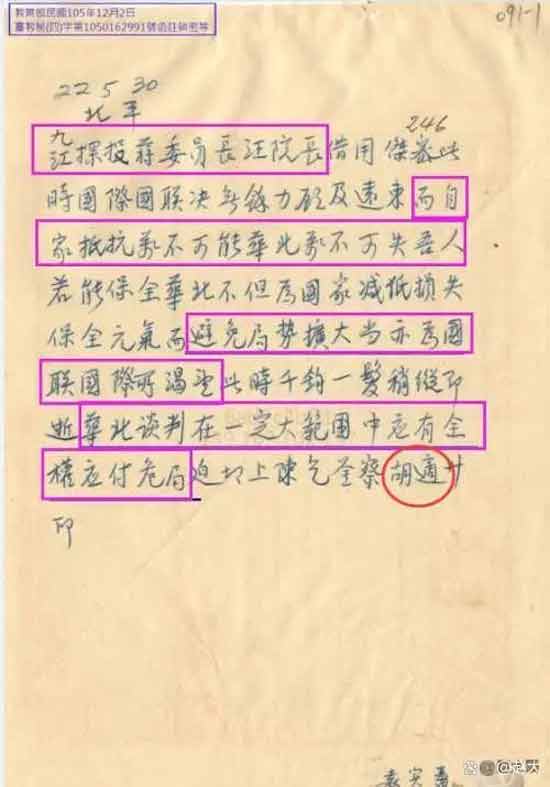 教育部民國105年12月2日
臺教秘(四)字第1050162991號函註銷密等
091-1
22 5 30
北平
246
九江探投蔣委員長汪院長借用傑密此
時國際國联决無餘力顧及遠東而自
家抵抗萬不可能華北萬不可失吾人
若能保全華北不但為國家减低損失
保全元氣而避免局势擴大当亦為國
联國際所渴望此時千鈞一髮稍縱即
逝華北谈判在一定大範囲中应有全
權应付危局迫切上陳乞垂察胡適廿
印